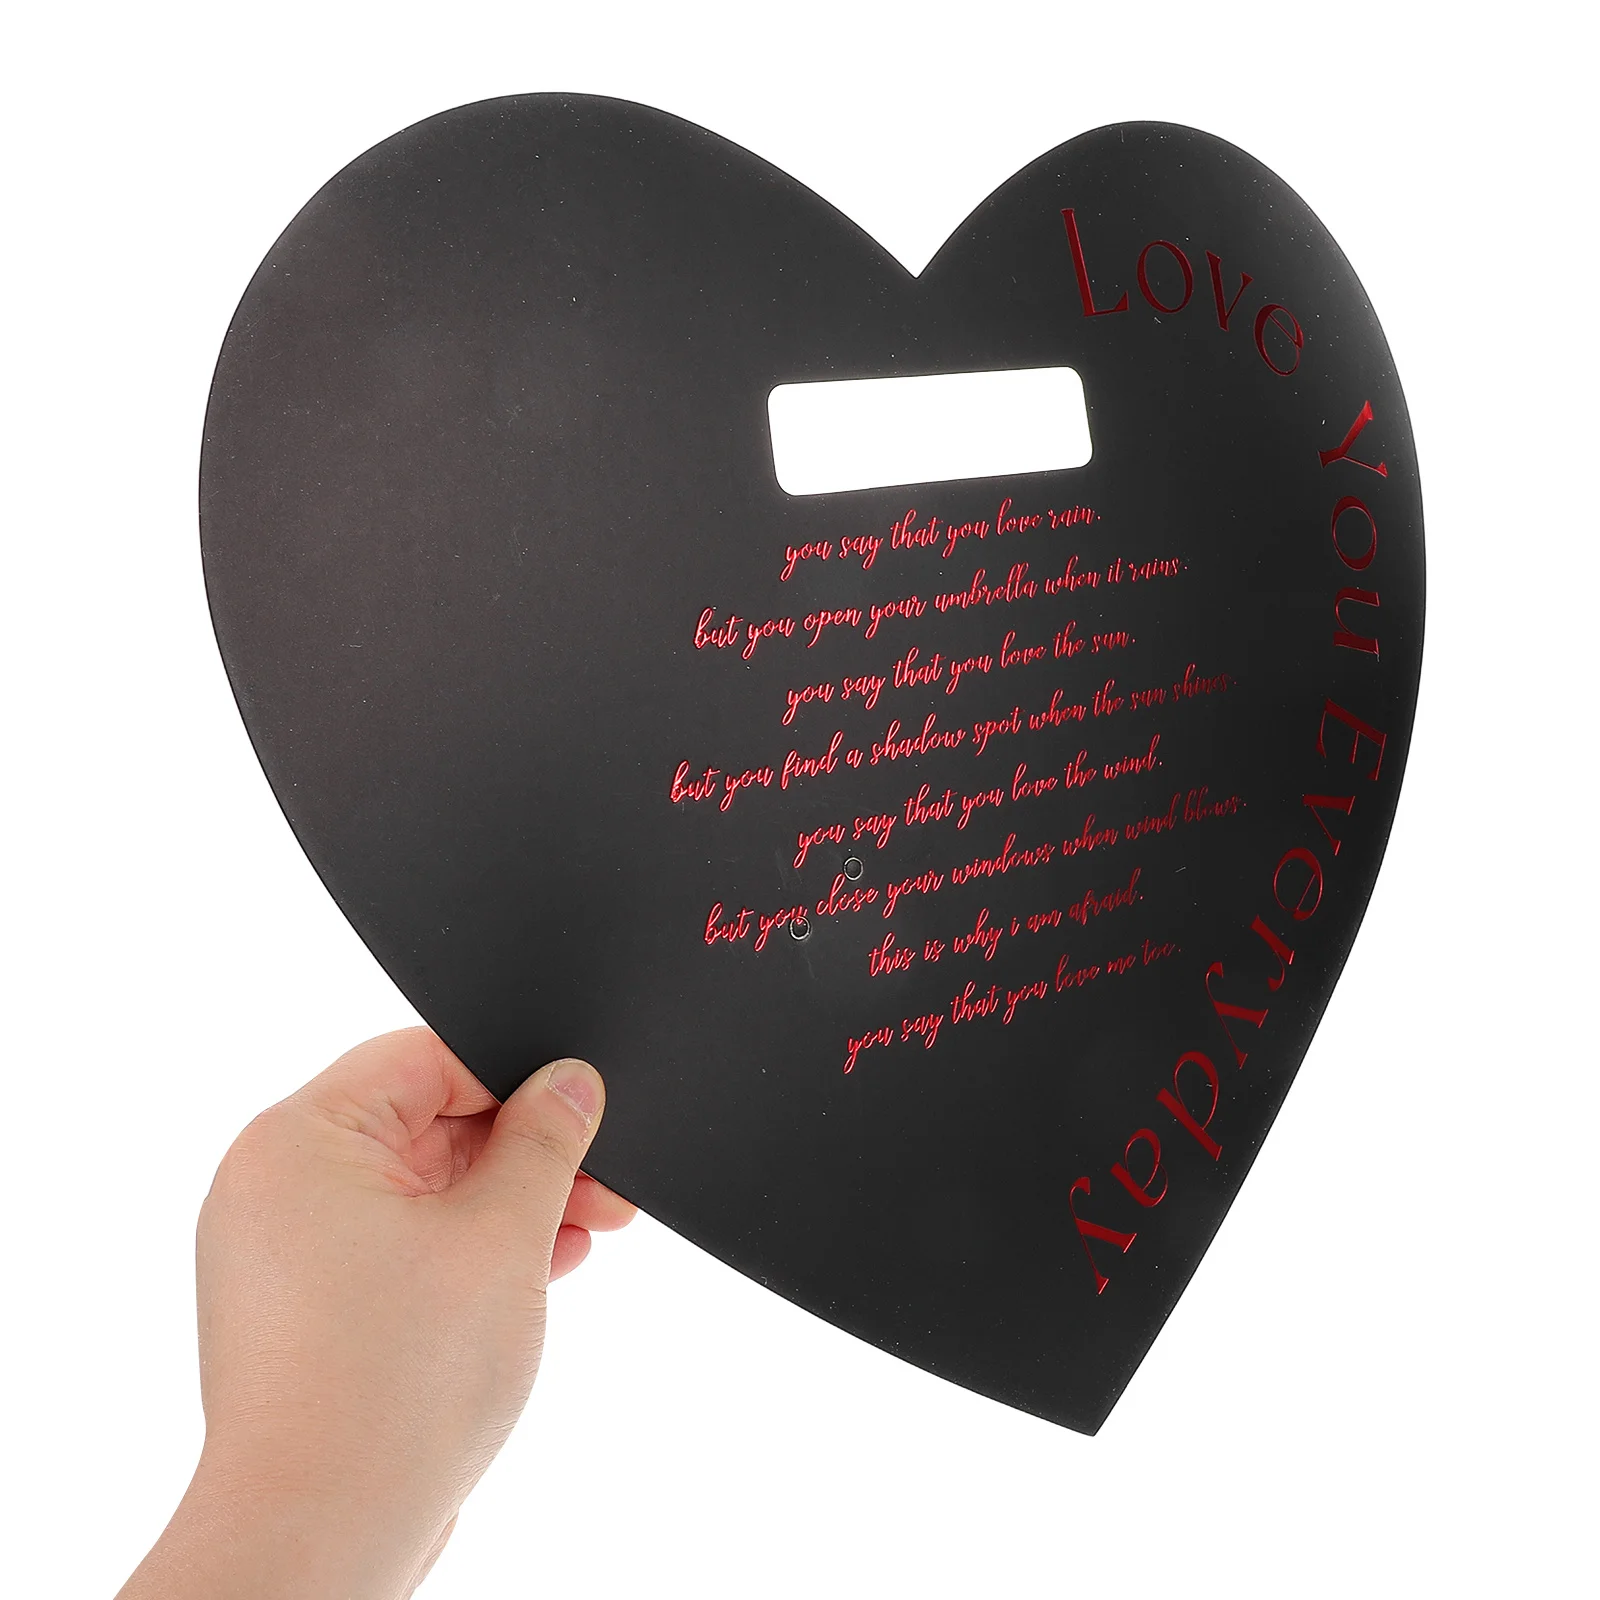 Love You Everyday
you say that you love rain.
but you open your umbrella when it rains.
you say that you love the sun.
but you find a shadow spot when the sun shines.
you say that you love the wind.
but you close your windows when wind blows.
this is why i am afraid.
you say that you love me too.